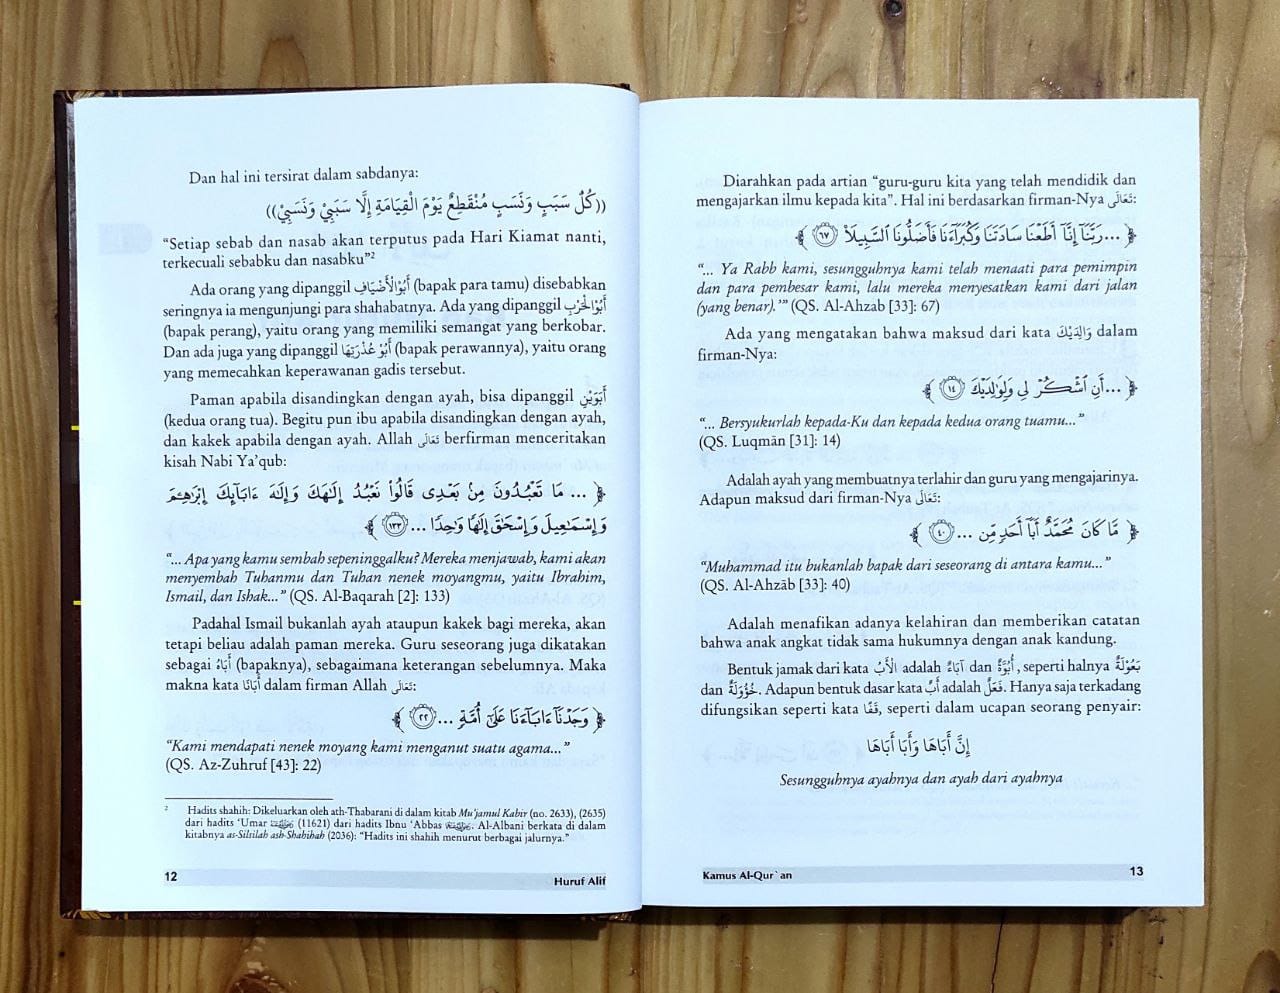 Dan hal ini tersirat dalam sabdanya:
((كُلُّ سَبَبٍ وَنَسَبٍ مُنْقَطِعٌ يَوْمَ الْقِيَامَةِ إِلَّا سَبَبِيْ وَنَسَبِيْ))
“Setiap sebab dan nasab akan terputus pada Hari Kiamat nanti,
terkecuali sebabku dan nasabku”2
Ada orang yang dipanggil أَبُوْالأَضْيَافِ (bapak para tamu) disebabkan
seringnya ia mengunjungi para shahabatnya. Ada yang dipanggil أَبُوْالْحَرْبِ
(bapak perang), yaitu orang yang memiliki semangat yang berkobar.
Dan ada juga yang dipanggil أَبُوْ عُذْرَتِهَا (bapak perawannya), yaitu orang
yang memecahkan keperawanan gadis tersebut.
Paman apabila disandingkan dengan ayah, bisa dipanggil أَبَوَيْنِ
(kedua orang tua). Begitu pun ibu apabila disandingkan dengan ayah,
dan kakek apabila dengan ayah. Allah تَعَالَى berfirman menceritakan
kisah Nabi Ya’qub:
﴿ ... مَا تَعْبُدُونَ مِنۢ بَعْدِى قَالُوا۟ نَعْبُدُ إِلَـٰهَكَ وَإِلَـٰهَ ءَابَآئِكَ إِبْرَٰهِـۧمَ
وَإِسْمَـٰعِيلَ وَإِسْحَـٰقَ إِلَـٰهًا وَٰحِدًا ... ١٣٣ ﴾
“... Apa yang kamu sembah sepeninggalku? Mereka menjawab, kami akan
menyembah Tuhanmu dan Tuhan nenek moyangmu, yaitu Ibrahim,
Ismail, dan Ishak...” (QS. Al-Baqarah [2]: 133)
Padahal Ismail bukanlah ayah ataupun kakek bagi mereka, akan
tetapi beliau adalah paman mereka. Guru seseorang juga dikatakan
sebagai أَبَاهُ (bapaknya), sebagaimana keterangan sebelumnya. Maka
makna kata أَبَانَا dalam firman Allah تَعَالَى:
﴿ وَجَدْنَآ ءَابَآءَنَا عَلَىٰٓ أُمَّةٍ ... ٢٢ ﴾
“Kami mendapati nenek moyang kami menganut suatu agama...”
(QS. Az-Zuhruf [43]: 22)
2 Hadits shahih: Dikeluarkan oleh ath-Thabarani di dalam kitab Mu’jamul Kabir (no. 2633), (2635)
dari hadits ‘Umar (11621) dari hadits Ibnu ‘Abbas . Al-Albani berkata di dalam
kitabnya as-Silsilah ash-Shahihah (2036): “Hadits ini shahih menurut berbagai jalurnya.”
12
Huruf Alif
Diarahkan pada artian “guru-guru kita yang telah mendidik dan
mengajarkan ilmu kepada kita”. Hal ini berdasarkan firman-Nya تَعَالَى:
﴿ ...رَبَّنَآ إِنَّآ أَطَعْنَا سَادَتَنَا وَكُبَرَآءَنَا فَأَضَلُّونَا ٱلسَّبِيلَا۠ ٦٧ ﴾
“... Ya Rabb kami, sesungguhnya kami telah menaati para pemimpin
dan para pembesar kami, lalu mereka menyesatkan kami dari jalan
(yang benar).’” (QS. Al-Ahzab [33]: 67)
Ada yang mengatakan bahwa maksud dari kata وَالِدَيْكَ dalam
firman-Nya:
﴿ ...أَنِ ٱشْكُرْ لِى وَلِوَٰلِدَيْكَ ١٤ ﴾
“... Bersyukurlah kepada-Ku dan kepada kedua orang tuamu...”
(QS. Luqmān [31]: 14)
Adalah ayah yang membuatnya terlahir dan guru yang mengajarinya.
Adapun maksud dari firman-Nya تَعَالَى:
﴿ مَّا كَانَ مُحَمَّدٌ أَبَآ أَحَدٍ مِّن ... ٤٠ ﴾
“Muhammad itu bukanlah bapak dari seseorang di antara kamu...”
(QS. Al-Ahzāb [33]: 40)
Adalah menafikan adanya kelahiran dan memberikan catatan
bahwa anak angkat tidak sama hukumnya dengan anak kandung.
Bentuk jamak dari kata الْأَبُ adalah آبَاءٌ dan أُبُوَّةٌ, seperti halnya بَعُوْلَةٌ
dan خُؤُوْلَةٌ. Adapun bentuk dasar kata أَبٌ adalah فَعَلٌ. Hanya saja terkadang
difungsikan seperti kata قَفًا, seperti dalam ucapan seorang penyair:
إِنَّ أَبَاهَا وَأَبَا أَبَاهَا
Sesungguhnya ayahnya dan ayah dari ayahnya
Kamus Al-Qur`an
13